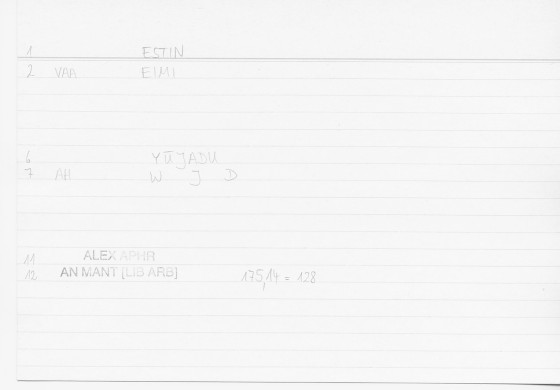 1 ESTIN
2 VAA EIMI
6 YŪJADU
7 AH W J D
11 ALEX APHR
12 AN MANT [LIB ARB] 175,14 = 128